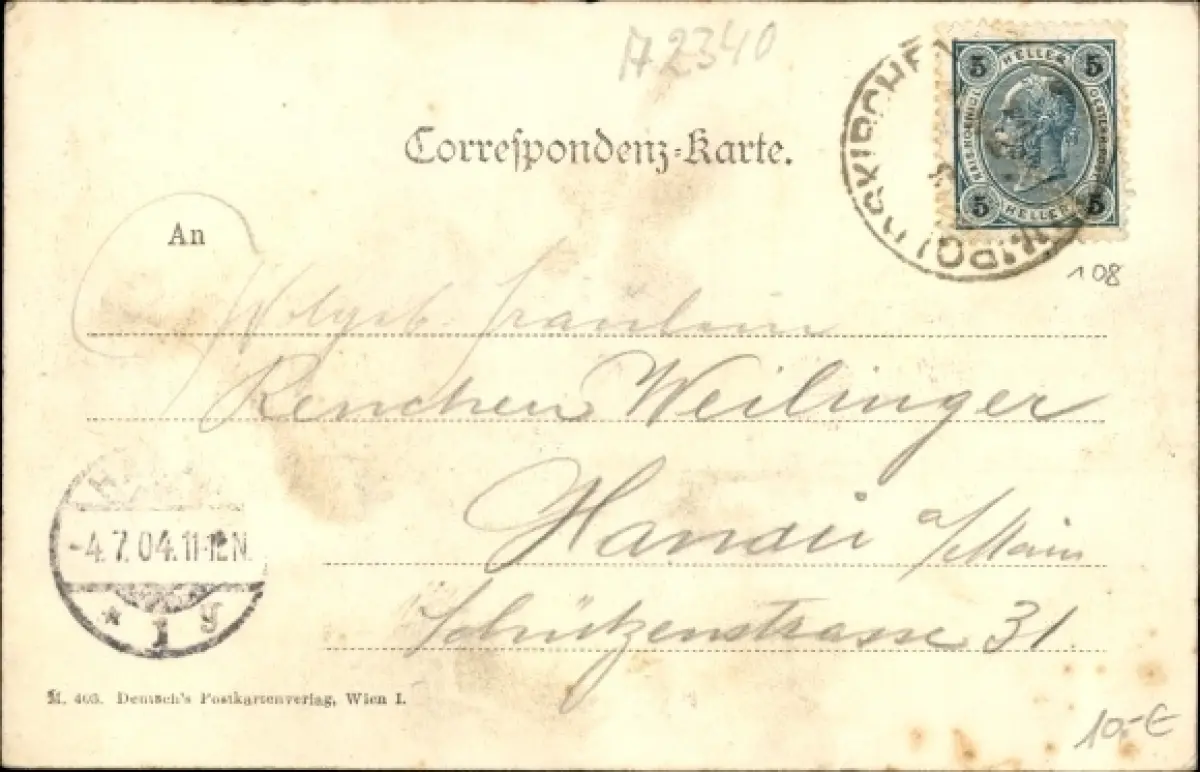 A2340
Correspondenz-Karte.
5 HELLER 5
5 HELLER 5
108
An
Wolgeb. Fräulein
Renchen Weilinger
Hanau a/Main
Schützenstrasse 31.
-4.7.04.11-12N.
* 1 g
M. 403. Deutsch's Postkartenverlag, Wien I.
10.-€